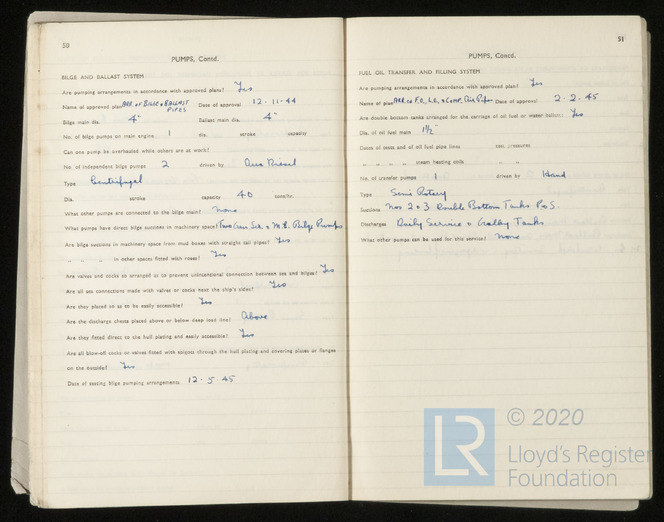 50
PUMPS, Contd.
BILGE AND BALLAST SYSTEM
Are pumping arrangements in accordance with approved plans? Yes
Name of approved plan ARR. of BILGE & BALLAST PIPES Date of approval 12-11-44
Bilge main dia. 4" Ballast main dia. 4"
No. of bilge pumps on main engine 1 dia. stroke capacity
Can one pump be overhauled while others are at work?
No. of independent bilge pumps 2 driven by Aux Diesel
Type Centrifugal
Dia. stroke capacity 40 tons/hr.
What other pumps are connected to the bilge main? None
What pumps have direct bilge suctions in machinery space? Two Gen Ser. & M.E. Bilge Pumps
Are bilge suctions in machinery space from mud boxes with straight tail pipes? Yes
" " " in other spaces fitted with roses? Yes
Are valves and cocks so arranged as to prevent unintentional connection between sea and bilges? Yes
Are all sea connections made with valves or cocks next the ship's sides? Yes
Are they placed so as to be easily accessible? Yes
Are the discharge chests placed above or below deep load line? Above
Are they fitted direct to the hull plating and easily accessible? Yes
Are all blow-off cocks or valves fitted with spigots through the hull plating and covering plates or flanges
on the outside? Yes
Date of testing bilge pumping arrangements 12-5-45
51
PUMPS, Contd.
FUEL OIL TRANSFER AND FILLING SYSTEM
Are pumping arrangements in accordance with approved plan? Yes
Name of plan ARR. of F.O., L.O., & Comp. Air Pipes Date of approval 2-2-45
Are double bottom tanks arranged for the carriage of oil fuel or water ballast? Yes
Dia. of oil main 1½"
Dates of tests and of oil fuel pipe lines test pressures
" " " " steam heating coils " "
No. of transfer pumps 1 driven by Hand
Type Semi Rotary
Suctions Nos 2 & 3 Double Bottom Tanks P & S.
Discharges Daily Service & Galley Tanks
What other pumps can be used for this service? None
© 2020
LR Lloyd's Register
Foundation